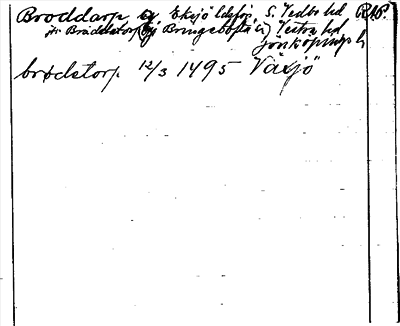 Broddarp Eksjö ldsfs, S. Vedbo hd RAP.
jfr Bröddstorp Bringetofta sn Västra hd
Jönköpings l
brodstorp 12/3 1495 Växjö